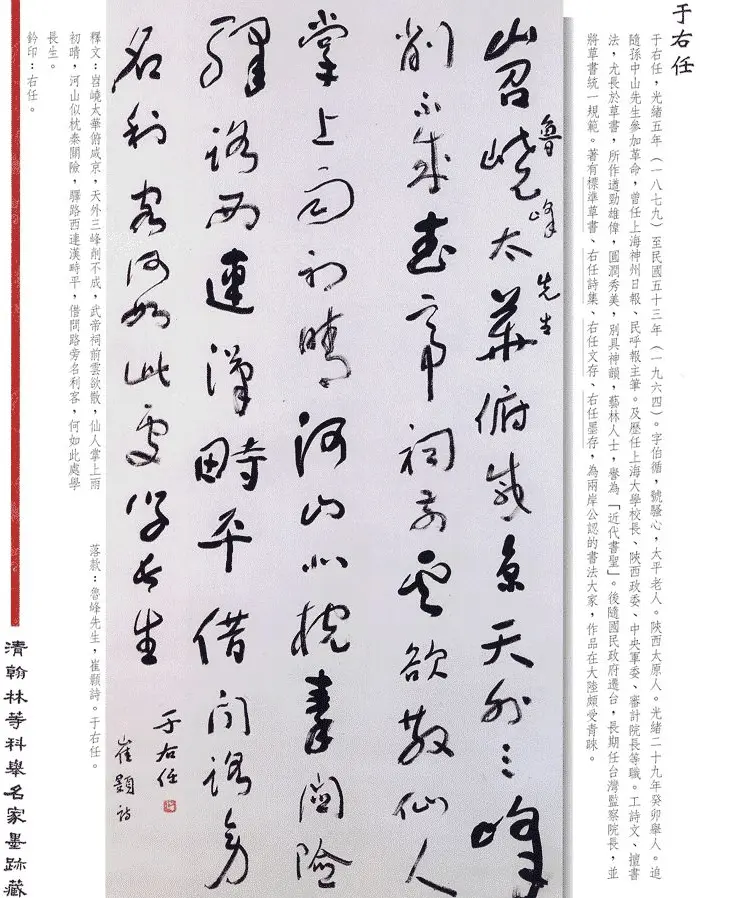 于右任
于右任，光緒五年（一八七九）至民國五十三年（一九六四）。字伯循，號騷心，太平老人。陝西太原人。光緒二十九年癸卯舉人。追
隨孫中山先生參加革命，曾任上海神州日報、民呼報主筆。及歷任上海大學校長、陝西政委、中央軍委、審計院長等職。工詩文、擅書
法，尤長於草書，所作遒勁雄偉，圓潤秀美，別具神韻，藝林人士，譽為「近代書聖」。後隨國民政府遷台，長期任台灣監察院長，並
將草書統一規範。著有標準草書、右任詩集、右任文存、右任墨存，為兩岸公認的書法大家，作品在大陸頗受青睞。
魯峰先生
岧嶢太華俯咸京天外三峰
削不成武帝祠前雲欲散仙人
掌上雨初晴河山北枕秦關險
驛路西連漢畤平借問路旁
名利客何如此處學長生
于右任
崔顥詩
釋文：岧嶢太華俯咸京，天外三峰削不成，武帝祠前雲欲散，仙人掌上雨
初晴，河山似枕泰關險，驛路西連漢畤平，借問路旁名利客，何如此處學
長生。
落款：魯峰先生，崔顥詩。于右任。
鈐印：右任。
清翰林等科舉名家墨跡藏